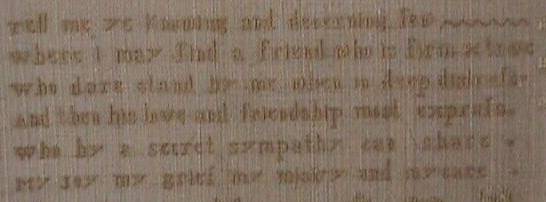 Tell me ye knowing and discerning few
where I may find a friend who is firm & true
who dare stand by me when in deep distress
and then his love and friendship most express
who by a secret sympathy can share
my joy my grief my misery and my care